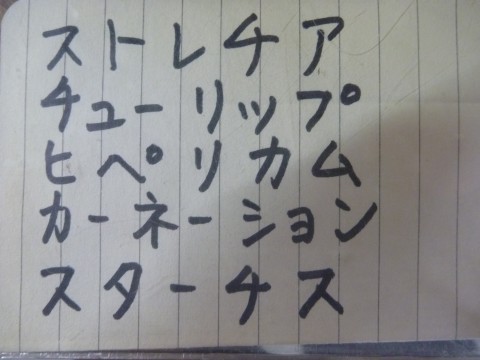 ストレチア
チューリップ
ヒペリカム
カーネーション
スターチス